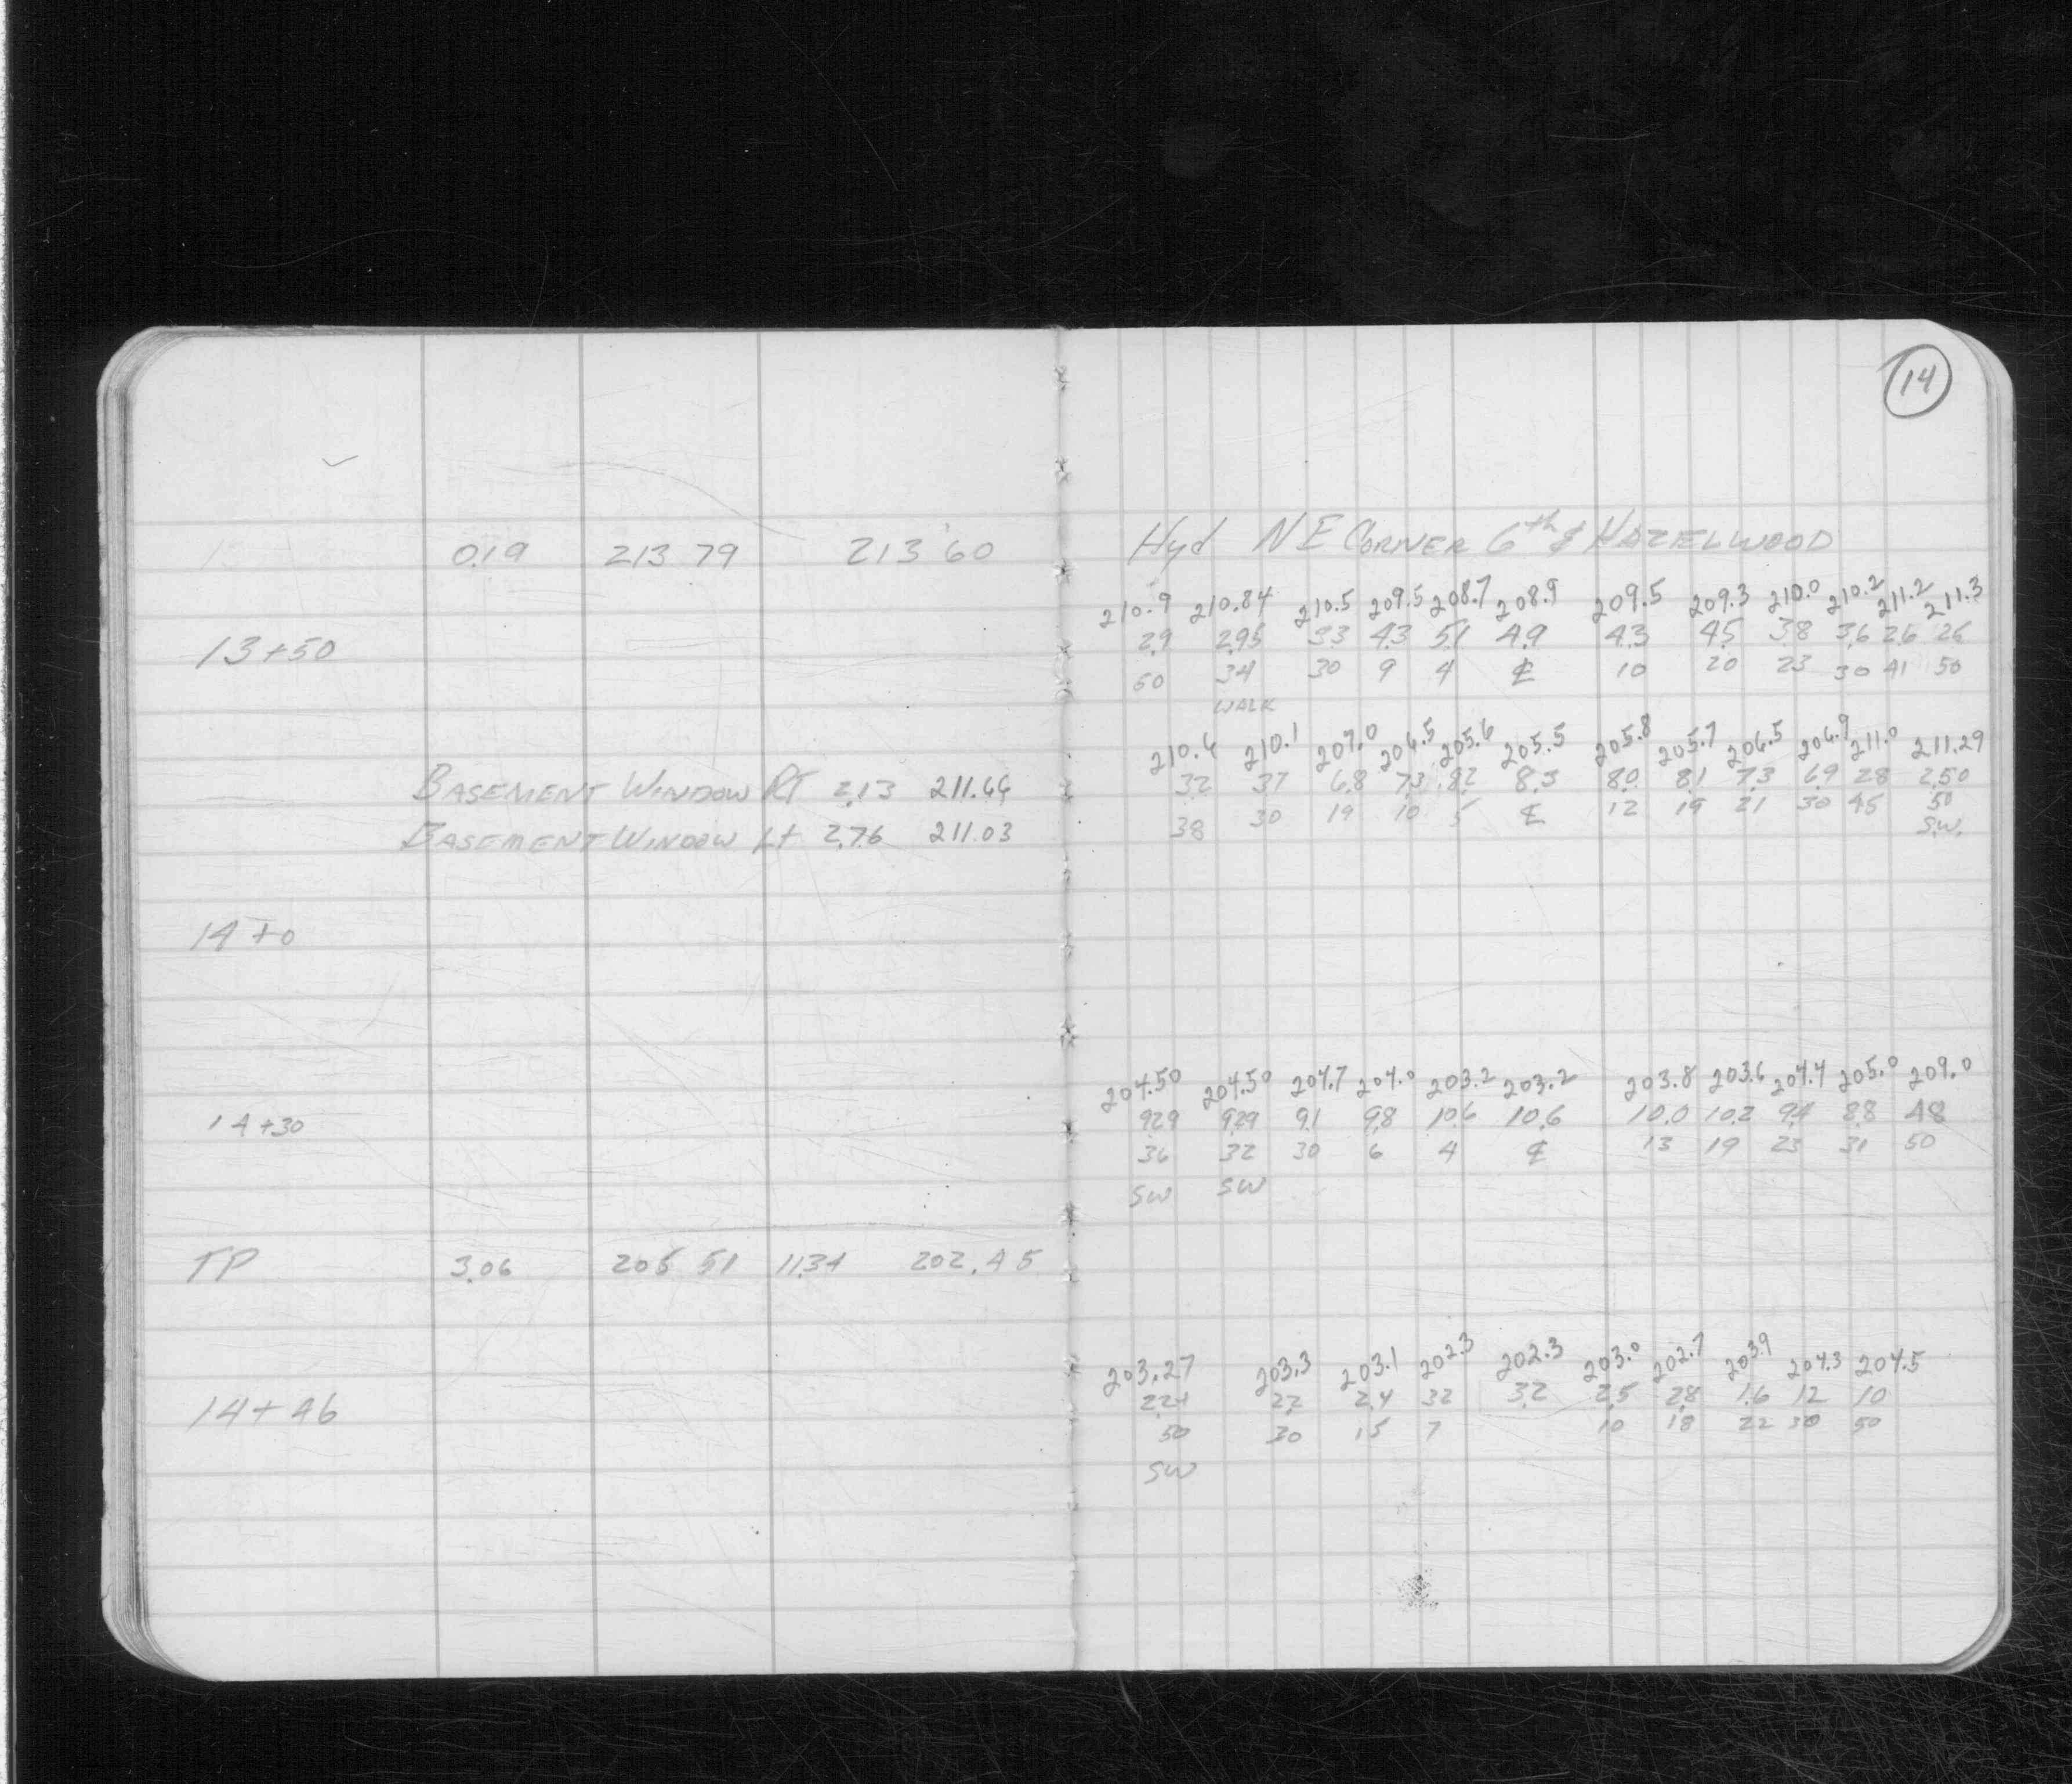 14
0.19 213 79 213 60 Hyd NE CORNER 6th & HAZELWOOD
210.9 210.84 210.5 209.5 208.7 208.9 209.5 209.3 210.0 210.2 211.2 211.3
13+50 2.9 2.95 3.3 4.3 5.1 4.9 4.3 4.5 3.8 3.6 2.6 26
50 34 30 9 4 ℄ 10 20 23 30 41 50
WALK
210.6 210.1 207.0 206.5 205.6 205.5 205.8 205.7 206.5 206.9 211.0 211.29
BASEMENT WINDOW RT 2.13 211.66 3.2 3.7 6.8 7.3 8.2 8.3 8.0 8.1 7.3 6.9 2.8 2.50
38 30 19 10 5 ℄ 12 19 21 30 45 50
BASEMENT WINDOW Lt 2.76 211.03 S.W.
14+0
204.50 204.50 204.7 204.0 203.2 203.2 203.8 203.6 204.4 205.0 209.0
14+30 9.29 9.29 9.1 9.8 10.6 10.6 10.0 10.2 9.4 8.8 4.8
36 32 30 6 4 ℄ 13 19 23 31 50
SW SW
TP 3.06 205 51 11.34 202.45
203.27 203.3 203.1 202.3 202.3 203.0 202.7 203.9 204.3 204.5
14+46 2.24 2.2 2.4 3.2 3.2 2.5 2.8 1.6 1.2 1.0
50 30 15 7 10 18 22 30 50
SW